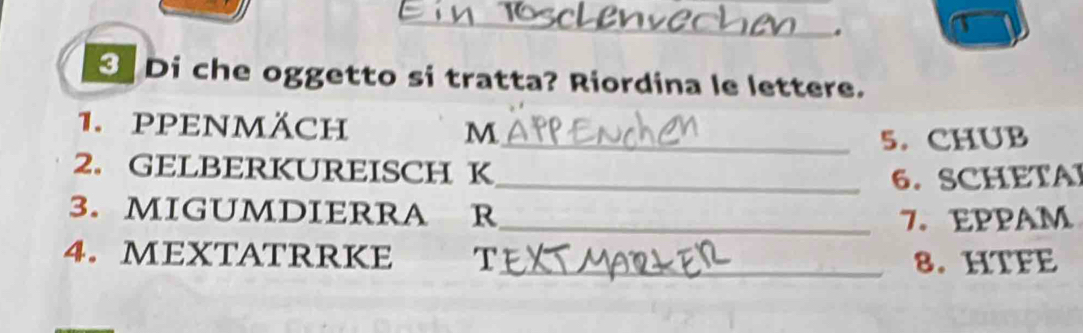 Ein Toschenvechen.
3 Di che oggetto si tratta? Riordina le lettere.
1. PPENMÄCH MÄPPENchen
5. CHUB
2. GELBERKUREISCH K
6. SCHETA
3. MIGUMDIERRA R
7. EPPAM
4. MEXTATRRKE TEXTMARKER
8. HTFE